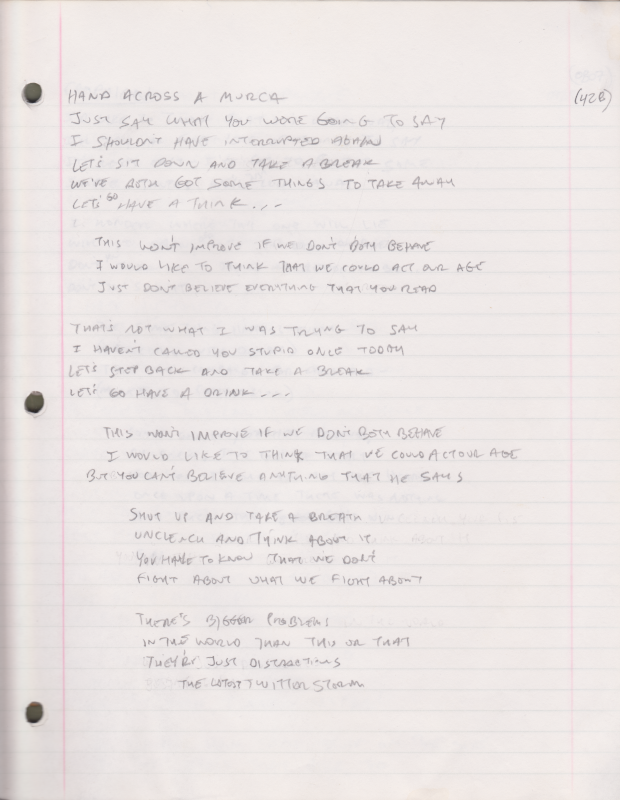 HAND ACROSS A MURCA
(42B)
JUST SAY WHAT YOU WERE GOING TO SAY
I SHOULDN'T HAVE INTERRUPTED AGAIN
LET'S SIT DOWN AND TAKE A BREAK
WE'VE BOTH GOT SOME THINGS TO TAKE AWAY
LET'S GO HAVE A THINK...
THIS WON'T IMPROVE IF WE DON'T BOTH BEHAVE
I WOULD LIKE TO THINK THAT WE COULD ACT OUR AGE
JUST DON'T BELIEVE EVERYTHING THAT YOU READ
THAT'S NOT WHAT I WAS TRYING TO SAY
I HAVEN'T CALLED YOU STUPID ONCE TODAY
LET'S STEP BACK AND TAKE A BREAK
LET'S GO HAVE A DRINK...
THIS WON'T IMPROVE IF WE DON'T BOTH BEHAVE
I WOULD LIKE TO THINK THAT WE COULD ACT OUR AGE
BUT YOU CAN'T BELIEVE ANYTHING THAT HE SAYS
SHUT UP AND TAKE A BREATH
UNCLENCH AND THINK ABOUT IT
YOU HAVE TO KNOW THAT WE DON'T
FIGHT ABOUT WHAT WE FIGHT ABOUT
THERE'S BIGGER PROBLEMS
IN THE WORLD THAN THIS OR THAT
THEY'RE JUST DISTRACTIONS
THE LATEST TWITTER STORM